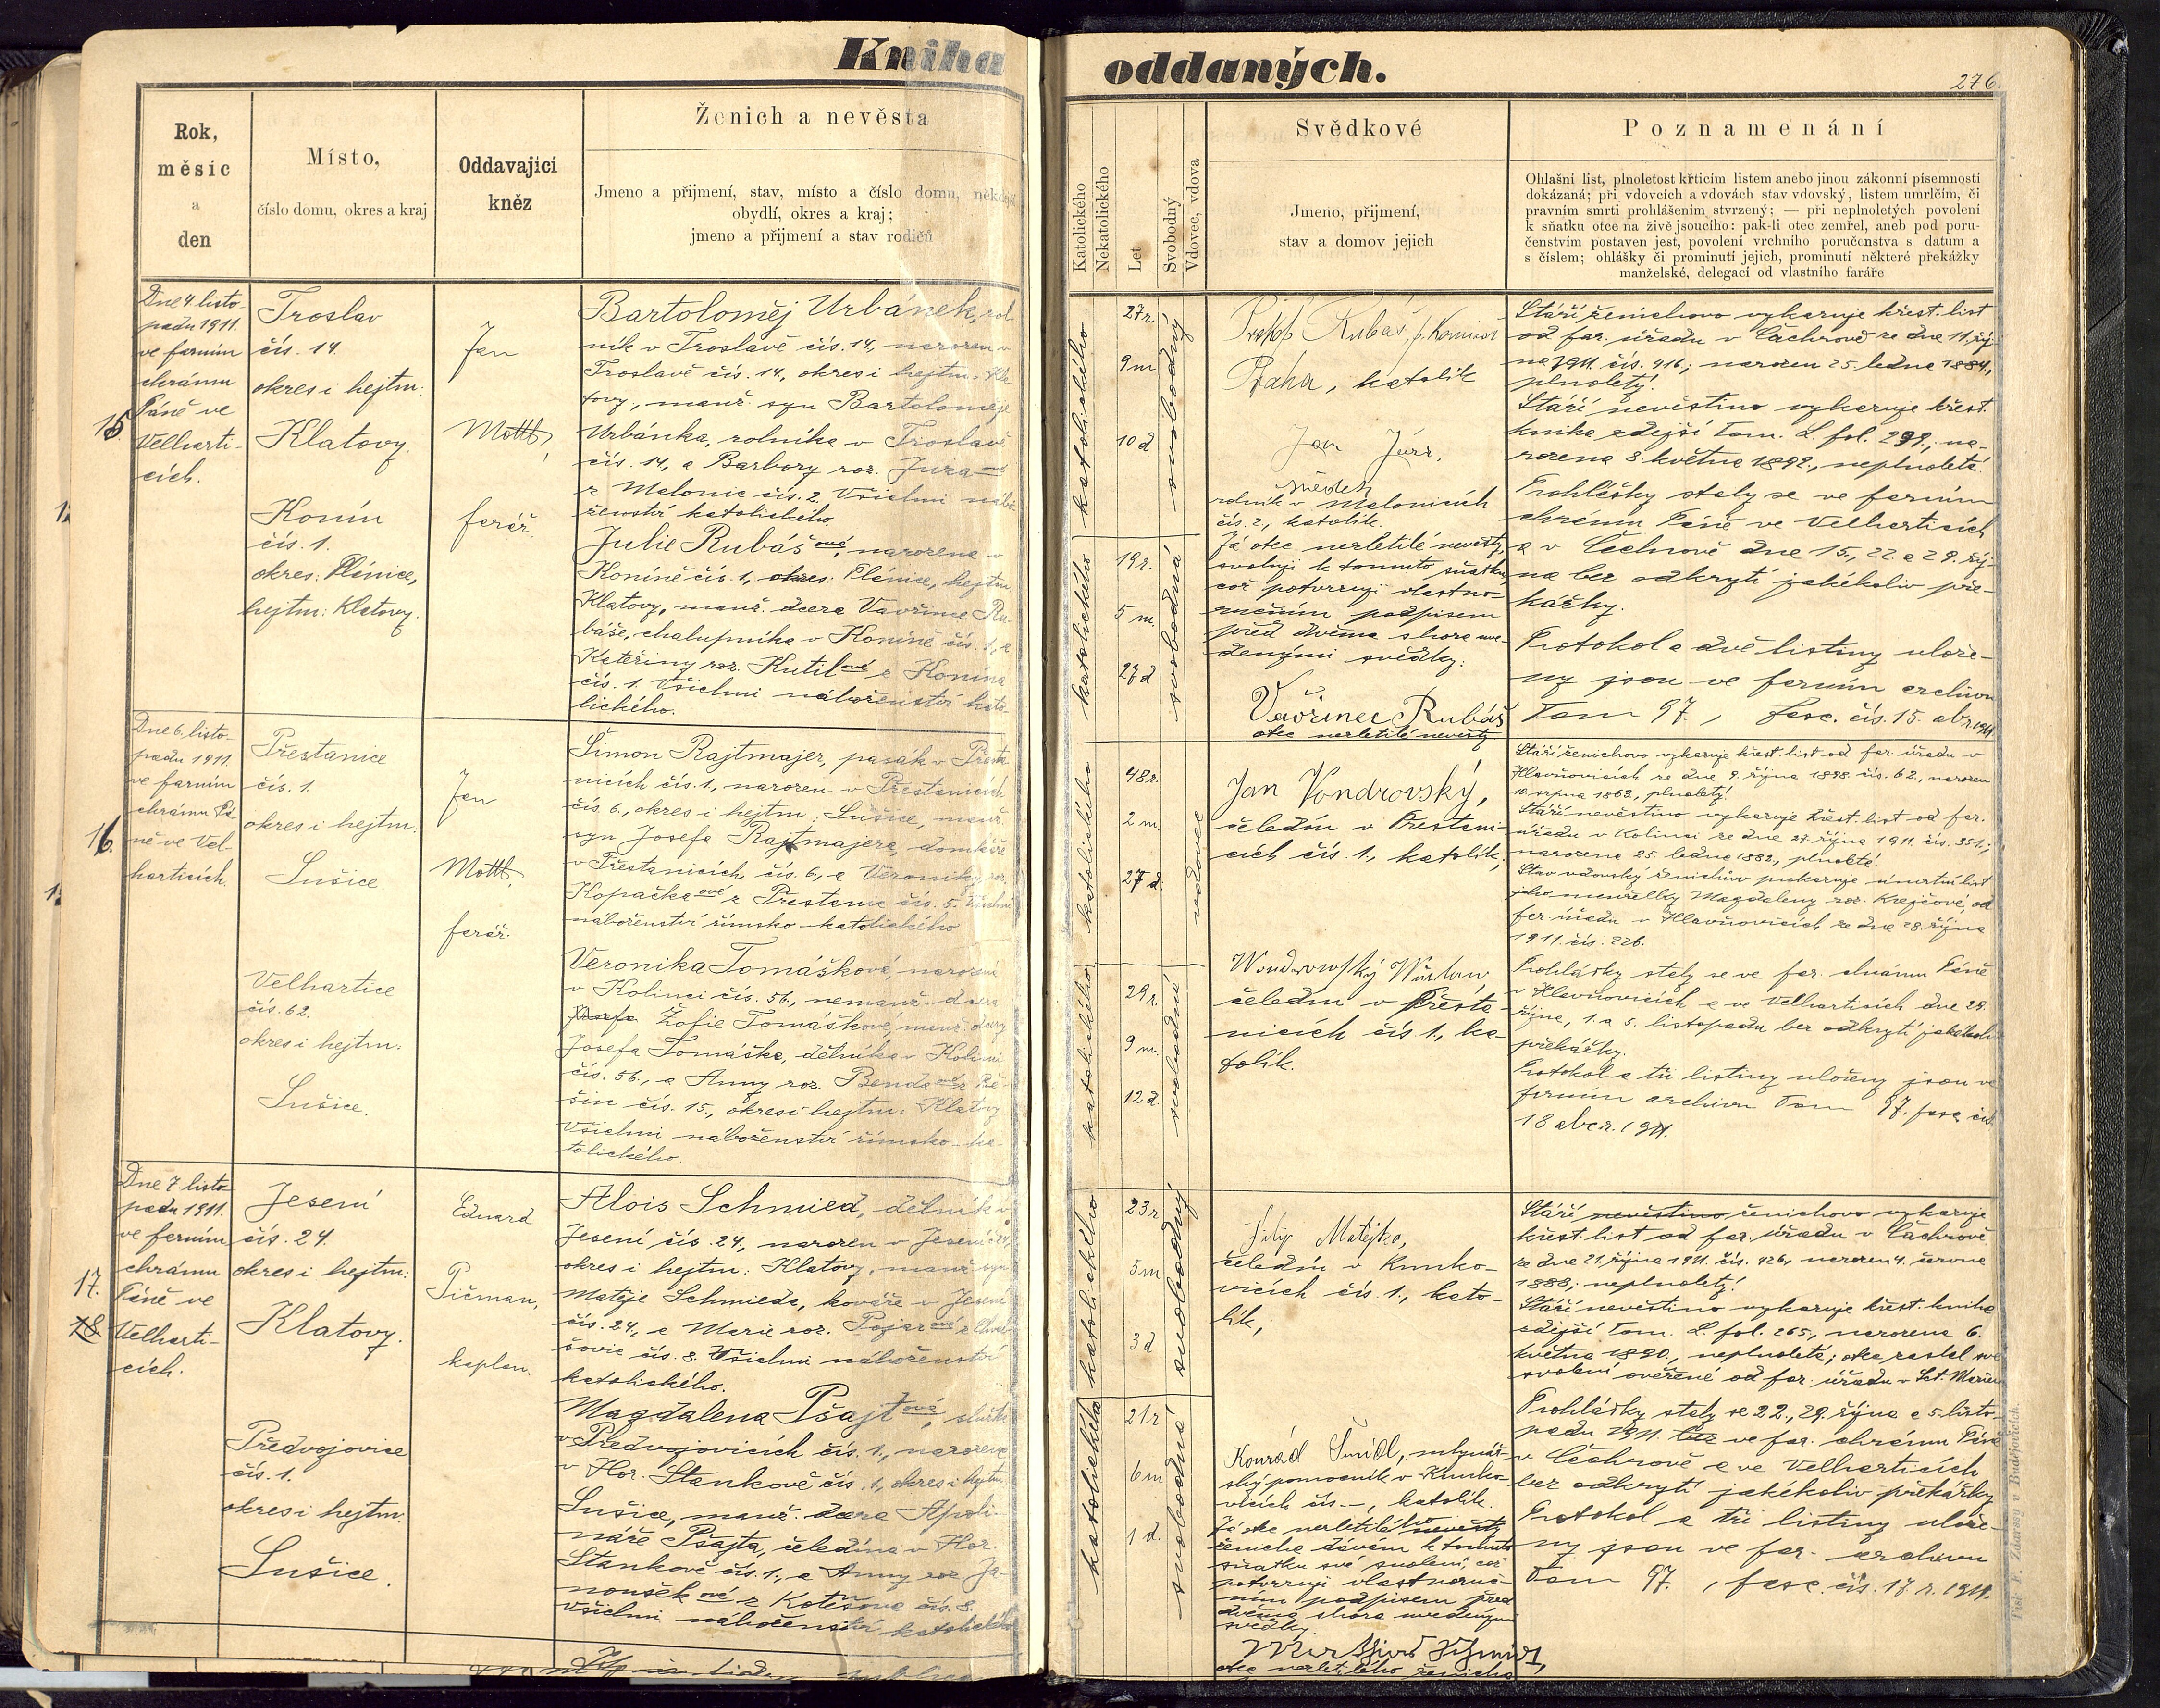 Kniha oddaných.
276.
Rok,
měsíc
a
den
Místo,
číslo domu, okres a kraj
Oddavající
kněz
Ženich a nevěsta
Jmeno a přijmení, stav, místo a číslo domu, někdejší
obydlí, okres a kraj;
jmeno a přijmení a stav rodičů
Katolického
Nekatolického
Let
Svobodný
Vdovec, vdova
Svědkové
Jmeno, přijmení,
stav a domov jejich
Poznamenání
Ohlašní list, plnoletost křticím listem anebo jinou zákonní písemností
dokázaná; při vdovcích a vdovách stav vdovský, listem umrlčím, či
pravním smrti prohlášením stvrzený; — při neplnoletých povolení
k sňatku otce na živě jsoucího: pak-li otec zemřel, aneb pod poru-
čenstvím postaven jest, povolení vrchního poručenstva s datum a
s číslem; ohlášky či prominutí jejich, prominutí některé překážky
manželské, delegací od vlastního faráře
15
Dne 4. listo-
padu 1911.
ve farním
chrámu
Páně ve
Velharti-
cích.
Troslav
čís. 14.
okres i hejtm:
Klatovy.
Konín
čís. 1.
okres: Plánice,
hejtm: Klatovy.
Jan
Mottl,
farář.
Bartoloměj Urbánek, rol-
ník v Troslavě čís. 14., narozen v
Troslavě čís. 14., okres i hejtm. Kla-
tovy, manž. syn Bartoloměje
Urbánka, rolníka v Troslavě
čís. 14, a Barbory roz. Jůza ové
z Malonic čís. 2. Všichni nábo-
ženství katolického.
Julie Rubášová, narozena v
Koníně čís. 1, okres: Plánice, hejtm.
Klatovy, manž. dcera Vavřince Ru-
báše, chalupníka v Koníně čís. 1, a
Kateřiny roz. Kutilové z Konína
čís. 1. Všichni náboženství kato-
lického.
katolického
27 r.
9 m
10 d
svobodný
katolického
19 r.
5 m.
27 d
svobodná
Praha, katolík
Jan Jůza,
svědek
rolník v Malonicích
čís. 2, katolík.
Já otec nezletilé nevěsty,
svoluji k tomuto sňatku,
což potvrzuji vlastno-
ručním podpisem
před dvěma shora uve-
denými svědky:
Vavřinec Rubáš
otec nezletilé nevěsty
Stáří ženichovo vykazuje křest. list
od far. úřadu v Čachrově ze dne 11. říj-
na 1911. čís. 416; narozen 25. ledna 1884,
plnoletý.
Stáří nevěstino vykazuje křest.
kniha zdejší Tom. L. fol. 299., na-
rozena 8. května 1892., neplnoletá.
Prohlášky staly se ve farním
chrámu Páně ve Velharticích
a v Čachrově dne 15., 22. a 29. říj-
na bez odkrytí jakékoliv pře-
kážky.
Protokol a dvě listiny ulože-
ny jsou ve farním archivu
Tom 97., fasc. čís. 15. ab 1911.
16.
Dne 6. listo-
padu 1911.
ve farním
chrámu Pá-
ně ve Vel-
harticích.
Přestanice
čís. 1.
okres i hejtm:
Sušice.
Velhartice
čís. 62.
okres i hejtm:
Sušice.
Jan
Mottl,
farář.
Šimon Rajtmajer, pasák v Přesta-
nicích čís. 1, narozen v Přestanicích
čís. 6., okres i hejtm: Sušice, manž.
syn Josefa Rajtmajera, domkáře
v Přestanicích čís. 6, a Veroniky, roz.
Kopačkaové z Přestanic čís. 5. Všichni
náboženství římsko-katolického
Veronika Tomášková, narozena
v Kolinci čís. 56., nemanž. dcera
Žofie Tomáškové, manž. dcery
Josefa Tomáška, dělníka v Kolinci
čís. 56., a Anny roz. Bendaové z Bě-
šin čís. 15., okres i hejtm: Klatovy
Všichni náboženství římsko-ka-
tolického.
katolického
48 r.
2 m.
27 d.
vdovec
katolického
29 r.
9 m.
12 d.
svobodná
Jan Vondrovský,
čeledín v Přestani-
cích čís. 1., katolík,
čeledín v Přesta-
nicích čís. 1., ka-
tolík.
Stáří ženichovo vykazuje křest. list od far. úřadu v
Hlavňovicích ze dne 9. října 1898 čís. 62., narozen
10. srpna 1863., plnoletý.
Stáří nevěstino vykazuje křest. list od far.
úřadu v Kolinci ze dne 27. října 1911. čís. 351.;
narozena 25. ledna 1882., plnoletá.
Stav vdovský ženichův prokazuje úmrtní list
jeho manželky Magdaleny roz. Krejčové, od
far. úřadu v Hlavňovicích ze dne 28. října
1911. čís. 226.
Prohlášky staly se ve far. chrámu Páně
v Hlavňovicích a ve Velharticích dne 29.
října, 1. a 5. listopadu bez odkrytí jakékoli
překážky.
Protokol a tři listiny uloženy jsou ve
farním archivu Tom 97. fasc. čís.
1911.
17.
18
Dne 7. listo-
padu 1911.
ve farním
chrámu
Páně ve
Velharti-
cích.
Jesení
čís. 24.
okres i hejtm:
Klatovy.
Předvojovice
čís. 1.
okres i hejtm.
Sušice.
Eduard
Pičman,
kaplan.
Alois Schmied, dělník v
Jesení čís. 24., narozen v Jesení č. 24,
okres i hejtm: Klatovy, manž. syn
Matěje Schmieda, kováře v Jesení
čís. 24., a Marie roz. Pojarové z Chval-
šovic čís. 8. Všichni náboženství
katolického.
Magdalena Pšajtová, služka
v Předvojovicích čís. 1., narozena
v Hor. Stankově čís. 1, okres i hejtm.
Sušice, manž. dcera Apoli-
náře Pšajta, čeledína v Hor.
Stankově čís. 1., a Anny roz. Ja-
noušekové z Kotešova čís. 8.
Všichni náboženství katolického
katolického
23 r
5 m
3 d
svobodný
katolického
21 r
6 m
1 d.
svobodná
Filip Matějka,
čeledín v Kunko-
vicích čís. 1., kato-
lík,
Konrád Šmídl, mlynář-
ský pomocník v Kunko-
vicích čís. —, katolík.
Já otec nezletilého nevěsty
ženicha dávám k tomuto
sňatku své svolení, což
potvrzuji vlastnoruč-
ním podpisem před
dvěma shora uvedenými
svědky.
otec nezletilého ženicha
Stáří nevěstino ženichovo vykazuje
křest. list od far. úřadu v Čachrově
ze dne 21. října 1911. čís. 426., narozen 4. června
1888; neplnoletý!
Stáří nevěstino vykazuje křest. kniha
zdejší Tom. L. fol. 265., narozena 6.
května 1890., neplnoletá; otec zaslal své
svolení ověřené od far. úřadu v Sct. Maria
Prohlášky staly se 22., 29. října a 5. listo-
padu 1911. ve far. chrámu Páně
v Čachrově a ve Velharticích
bez odkrytí jakékoliv překážky
Protokol a tři listiny ulože-
ny jsou ve far. archivu
Tom 97., fasc. čís. 17. r. 1911.